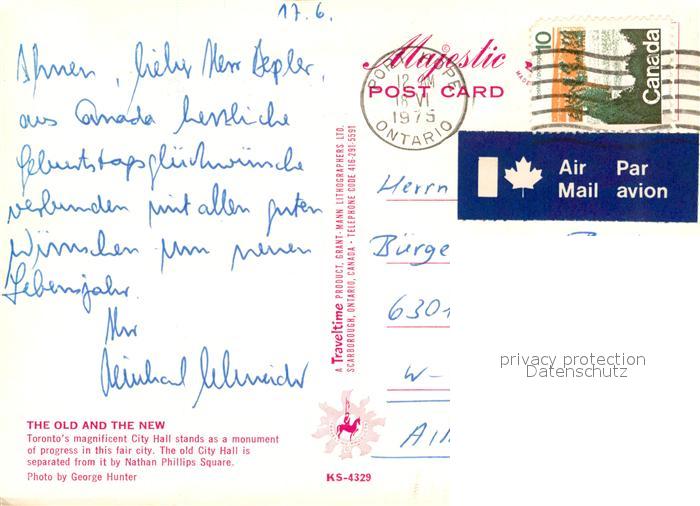 17. 6.
Ihnen, lieber Herr Depler,
aus Canada herzliche
Geburtstagsglückwünsche
verbunden mit allen guten
Wünschen zum neuen
Lebensjahr.
Ihr
Reinhard Schneider
THE OLD AND THE NEW
Toronto's magnificent City Hall stands as a monument
of progress in this fair city. The old City Hall is
separated from it by Nathan Phillips Square.
Photo by George Hunter
A Traveltime PRODUCT, GRANT-MANN LITHOGRAPHERS LTD.
SCARBOROUGH, ONTARIO, CANADA - TELEPHONE CODE 416-291-5591
KS-4329
Majestic
POST CARD
PORT HOPE
12 AM
18 VI
1975
ONTARIO
10
Canada
Air Par
Mail avion
Herrn
Bürge
6301
W-
privacy protection
Datenschutz